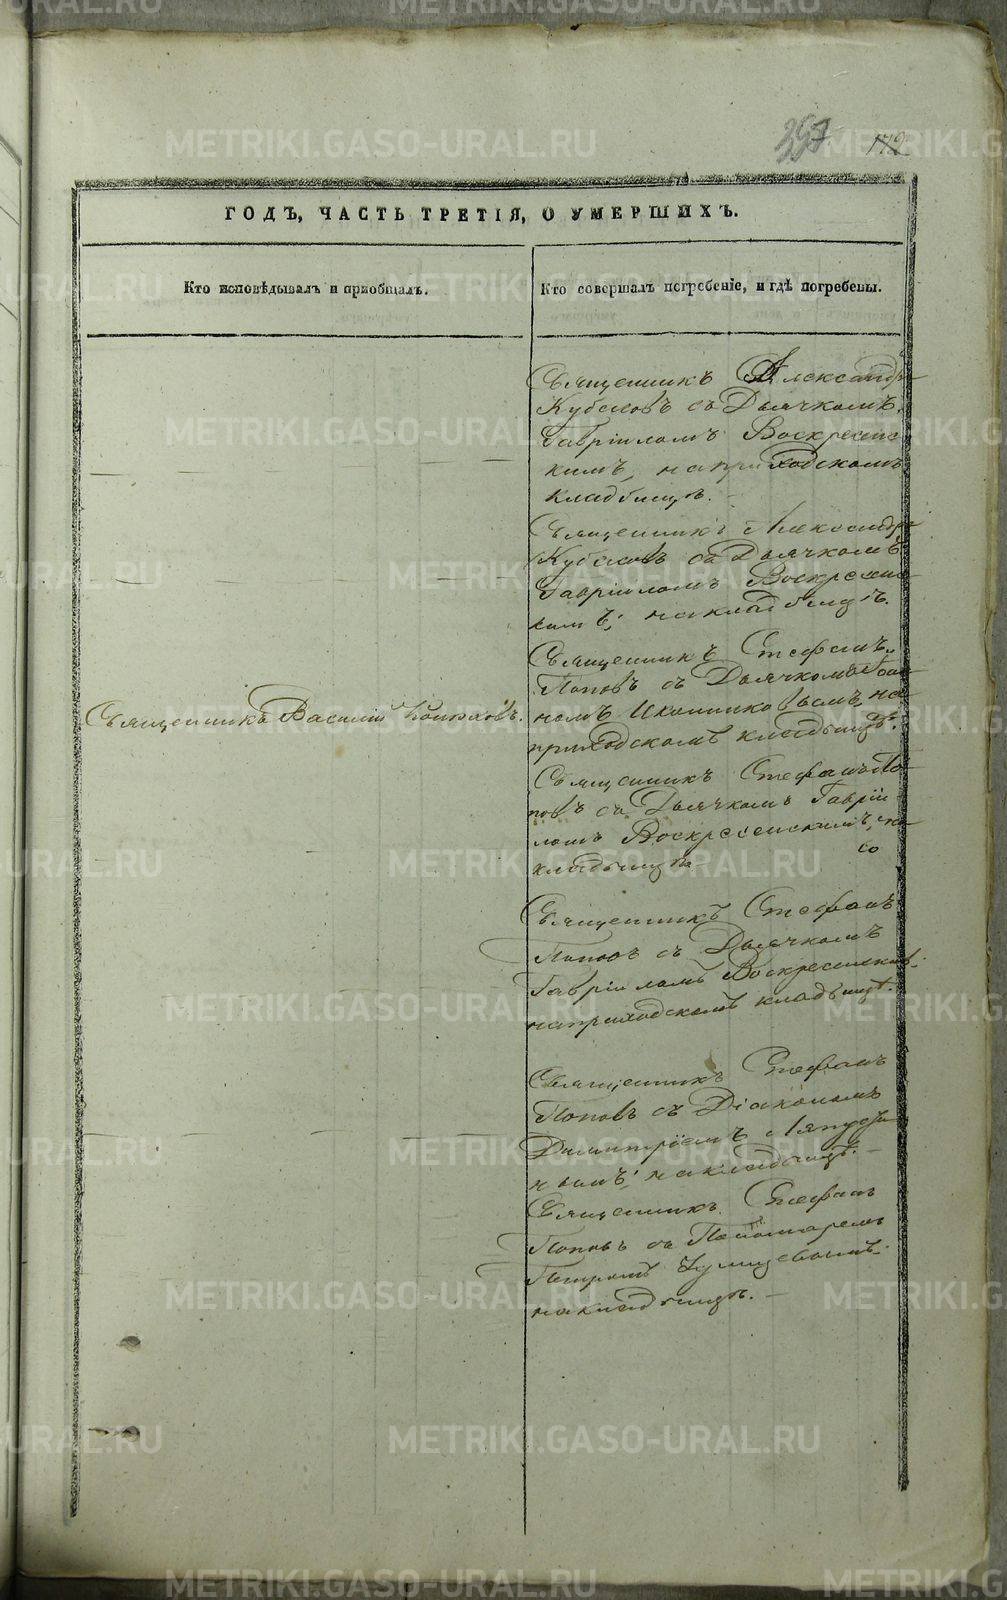 397 172
ГОДЪ, ЧАСТЬ ТРЕТІЯ, О УМЕРШИХЪ.
Кто исповѣдывалъ и пріобщалъ.
Кто совершалъ погребеніе, и гдѣ погребены.
Священникъ Александръ
Кубасовъ съ Дьячкомъ
Гавріиломъ Воскресенс
кимъ, на приходскомъ
кладбищѣ.
Священникъ Александръ
Кубасовъ съ Дьячкомъ
Гавріиломъ Воскресенс
кимъ; на кладбищѣ.
Священникъ Стефанъ
Священникъ Василій
Поповъ съ Дьячкомъ Іоан
номъ Иконниковымъ, на
приходскомъ кладбищѣ.
Священникъ Стефанъ По
повъ съ Дьячкомъ Гавріи
ломъ Воскресенскимъ, на
кладбищѣ
Священникъ Стефанъ
Поповъ съ Дьячкомъ
Гавріиломъ Воскресенским:
на приходскомъ кладбищѣ.
Священникъ Стефанъ
Поповъ съ Діакономъ
Димитріемъ
нымъ; на кладбищѣ.
Священникъ Стефанъ
Поповъ съ Пономаремъ
Петромъ
на кладбищѣ.
METRIKI.GASO-URAL.RU